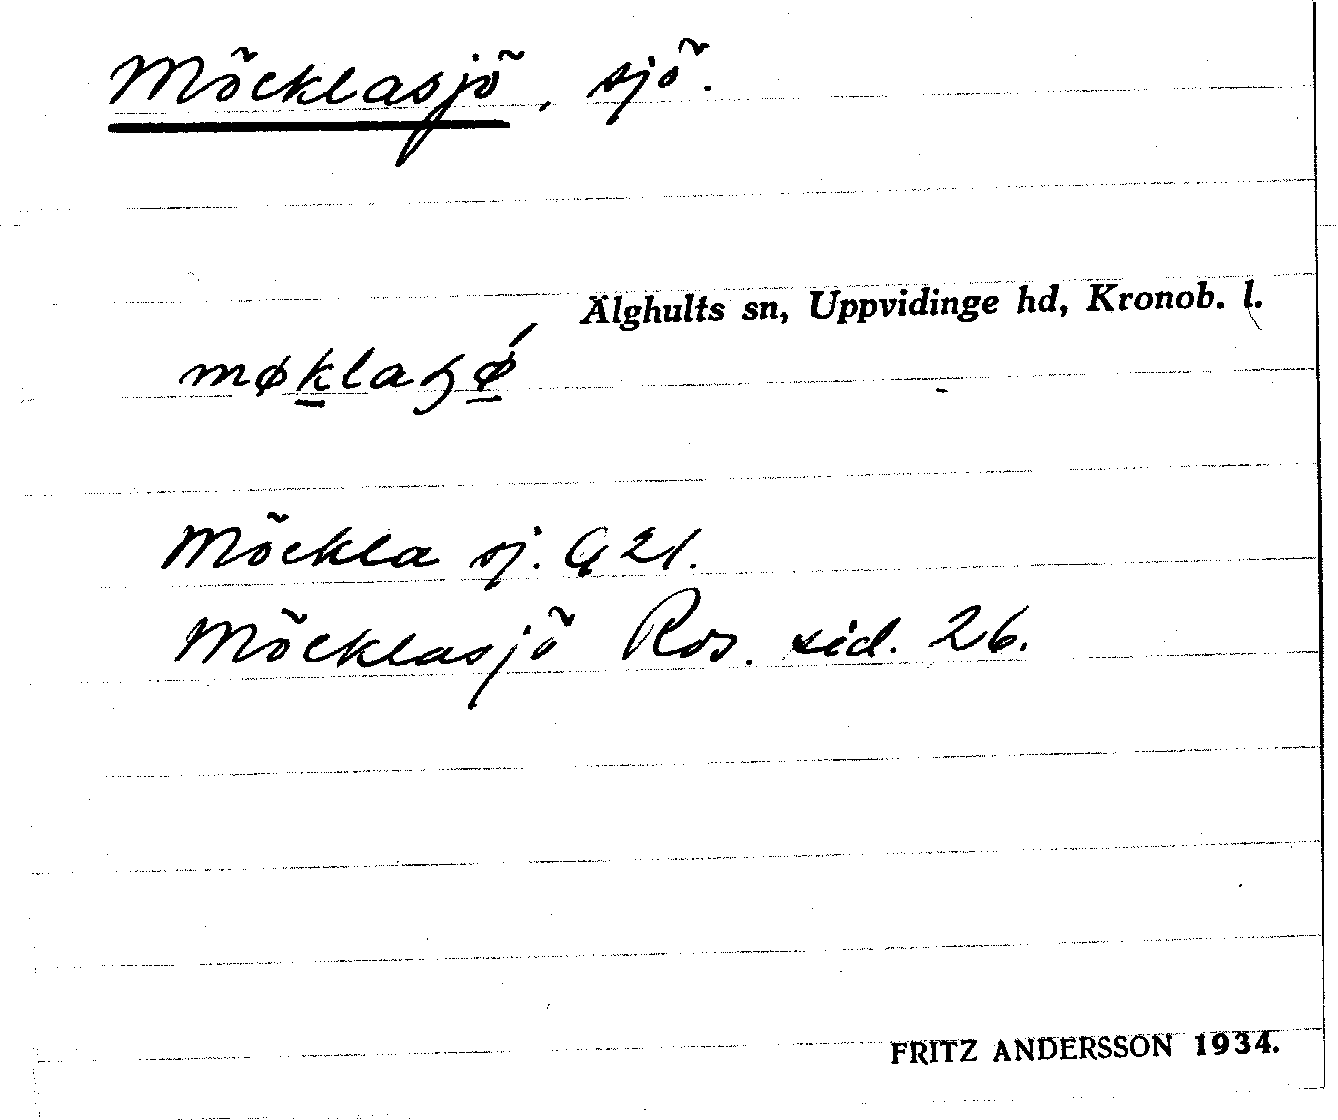 Möcklasjö, sjö.
Älghults sn, Uppvidinge hd, Kronob. l.
møklaɧø´
Möckla sj. G 21.
Möcklasjö Ros. sid. 26.
FRITZ ANDERSSON 1934.